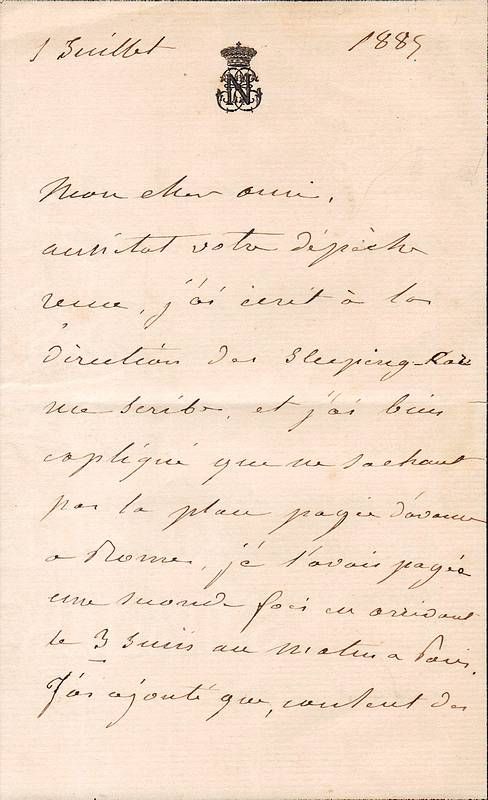 1 Juillet 1885.
N
Mon cher ami,
aussitot votre dépêche
venue, j'ai écrit à la
direction des Sleeping-Cars
rue Scribe, et j'ai bien
expliqué que ne sachant
pas la place payée d'avance
a Rome, je l'avais payée
une seconde fois en arrivant
le 3 Juin au matin a Paris.
J'ai ajouté que, content des